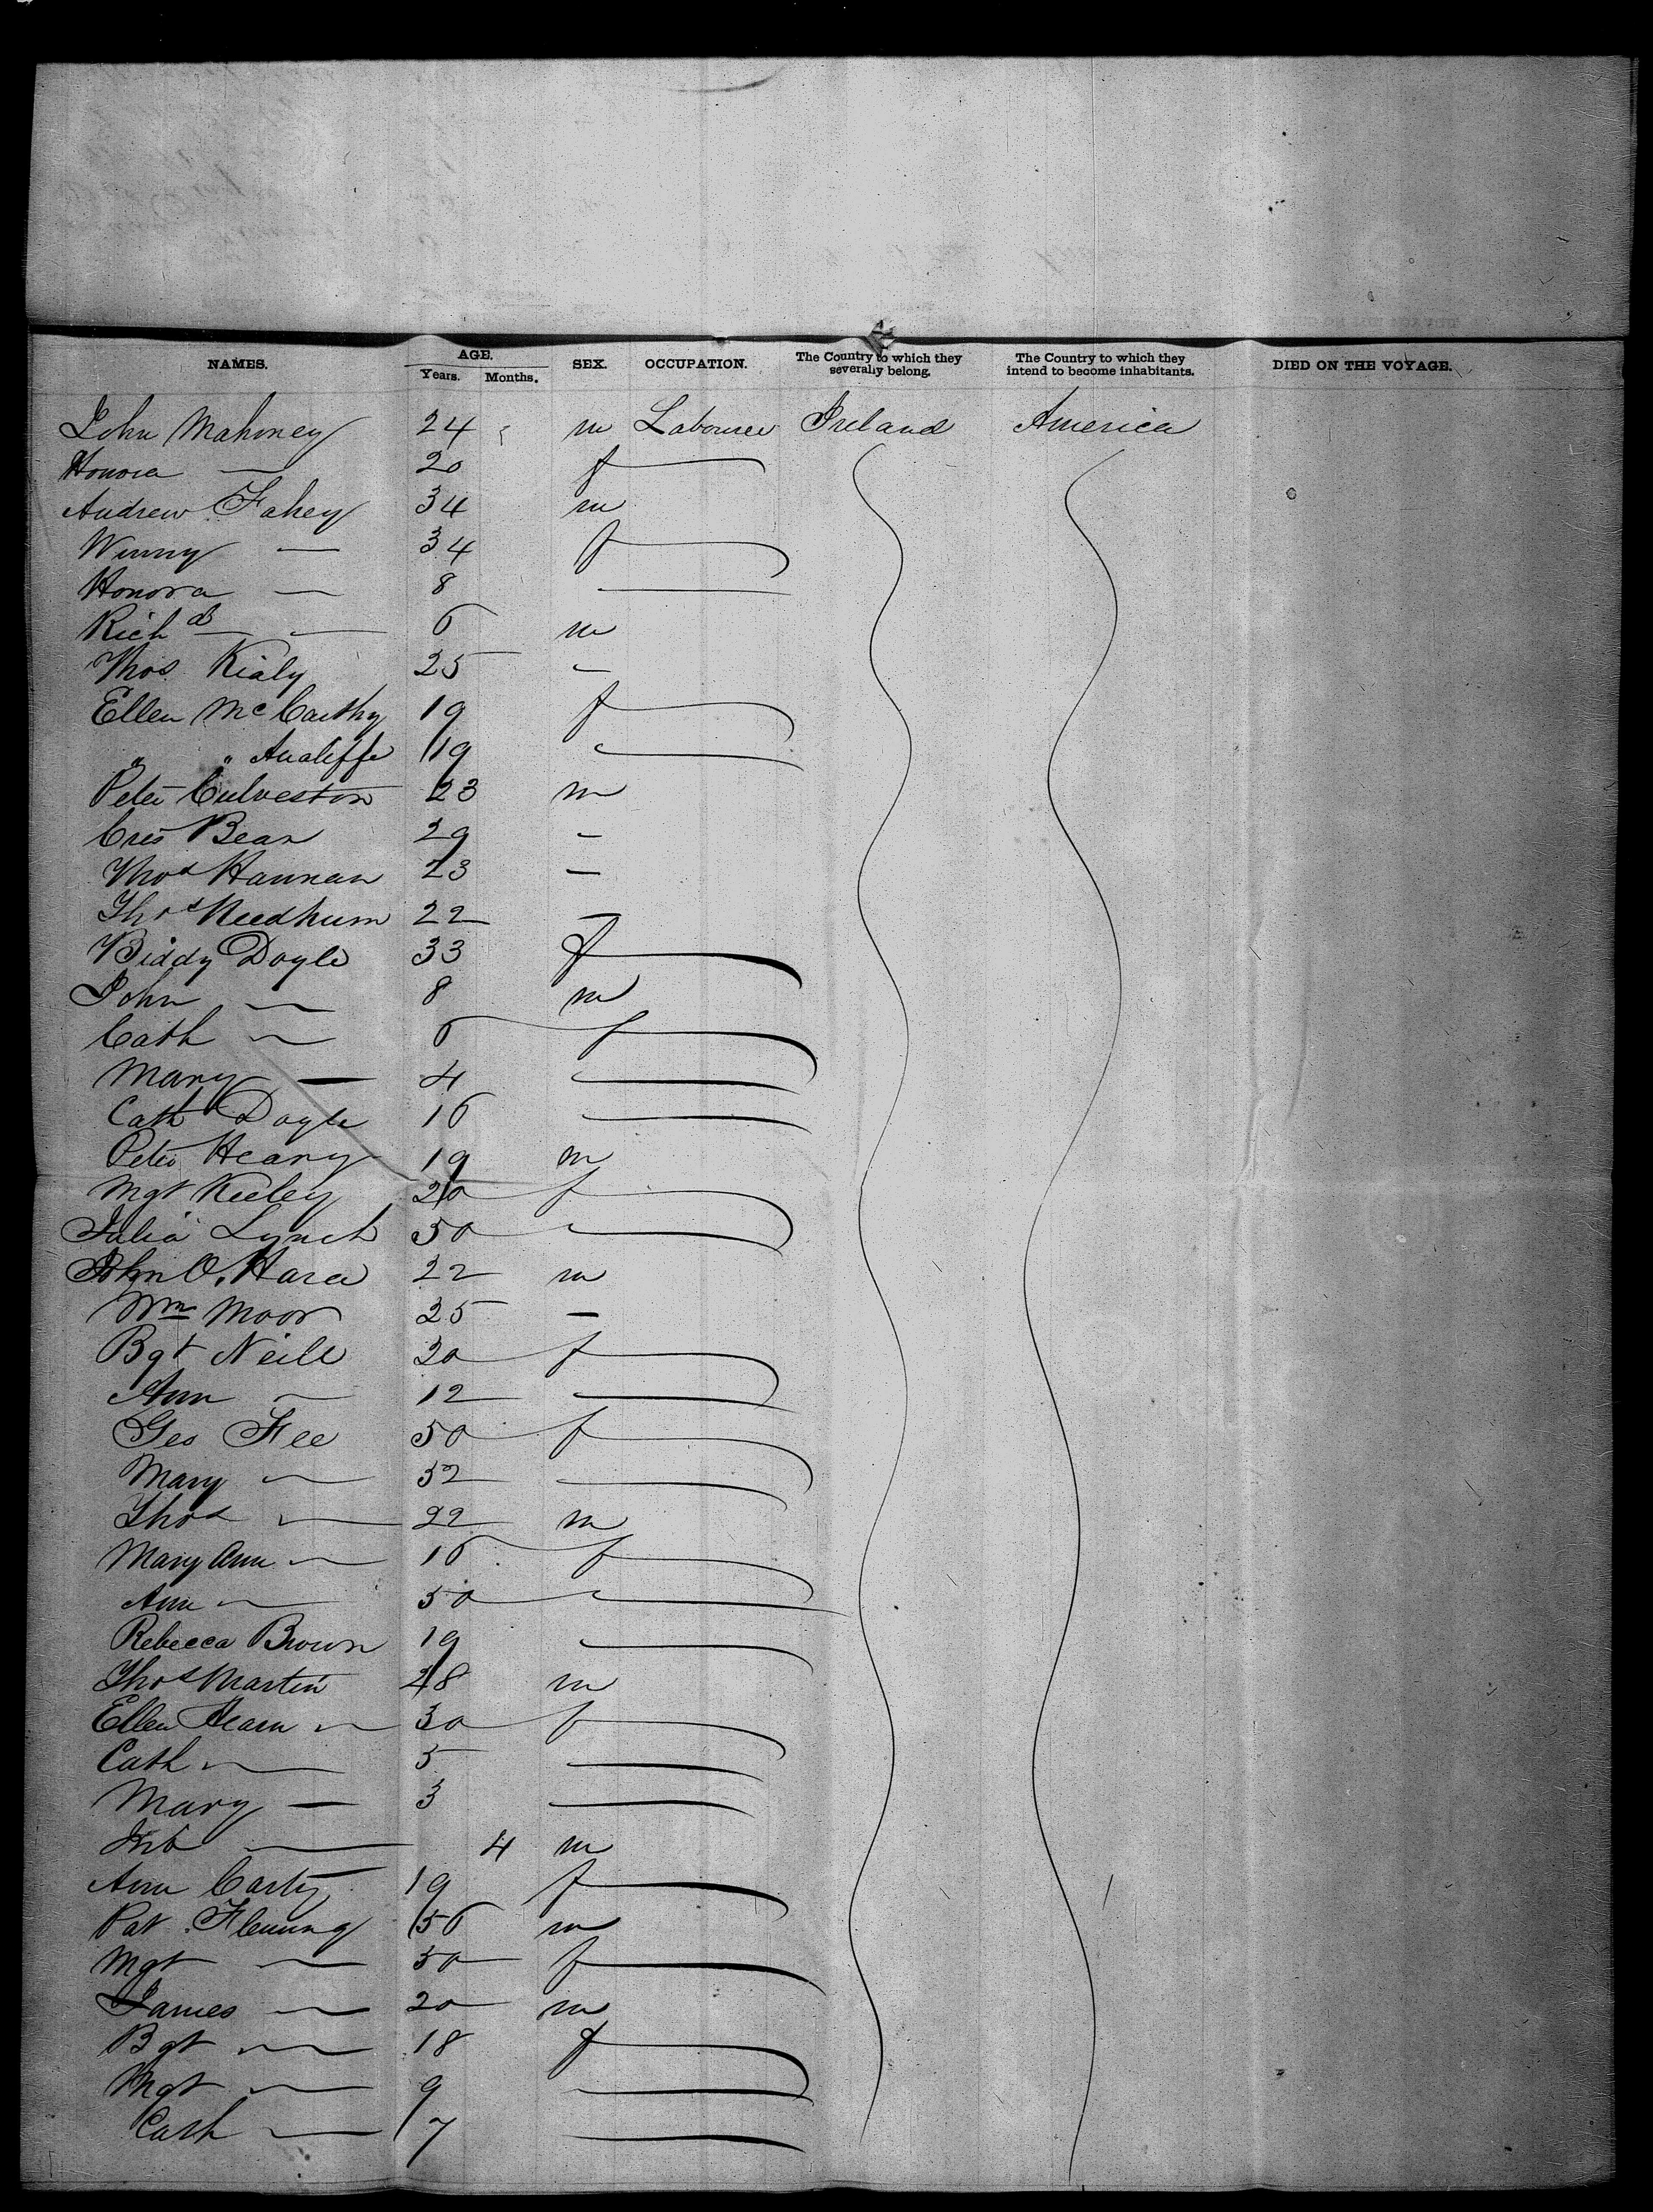 NAMES. AGE. SEX. OCCUPATION. The Country to which they severally belong. The Country to which they intend to become inhabitants. DIED ON THE VOYAGE.
Years. Months.
John Mahoney 24 m Labourer Ireland America
Honora — 20 f
Andrew Fahey 34 m
Winny — 34 f
Honora — 8 —
Richd — 6 m
Thos Kialy 25 —
Ellen McCarthy 19 f
" " Aualiffe 19 —
Peter Culveston 23 m
Cris Bean 29 —
Thos Hannan 23 —
Thos Needhum 22 —
Biddy Doyle 33 f
John — 8 m
Cath — 6 f
Mary — 4 —
Cath Doyle 16 —
Peter Heany 19 m
Mgt Keeley 20 f
Julia Lynch 50 —
John O'Hara 22 m
Wm Moor 25 —
Bgt Neill 30 f
Ann — 12 —
Geo Fee 50 f
Mary — 52 —
Thos — 22 m
Mary Ann — 16 f
Ann — 50 —
Rebecca Brown 19 —
Thos Martin 28 m
Ellen Hearn — 30 f
Cath — 5 —
Mary — 3 —
— 4 m
Ann Carty 19 f
Pat Fleming 56 m
Mgt — 50 f
James — 20 m
Bgt — 18 f
Mgt — 9 —
Cath — 7 —